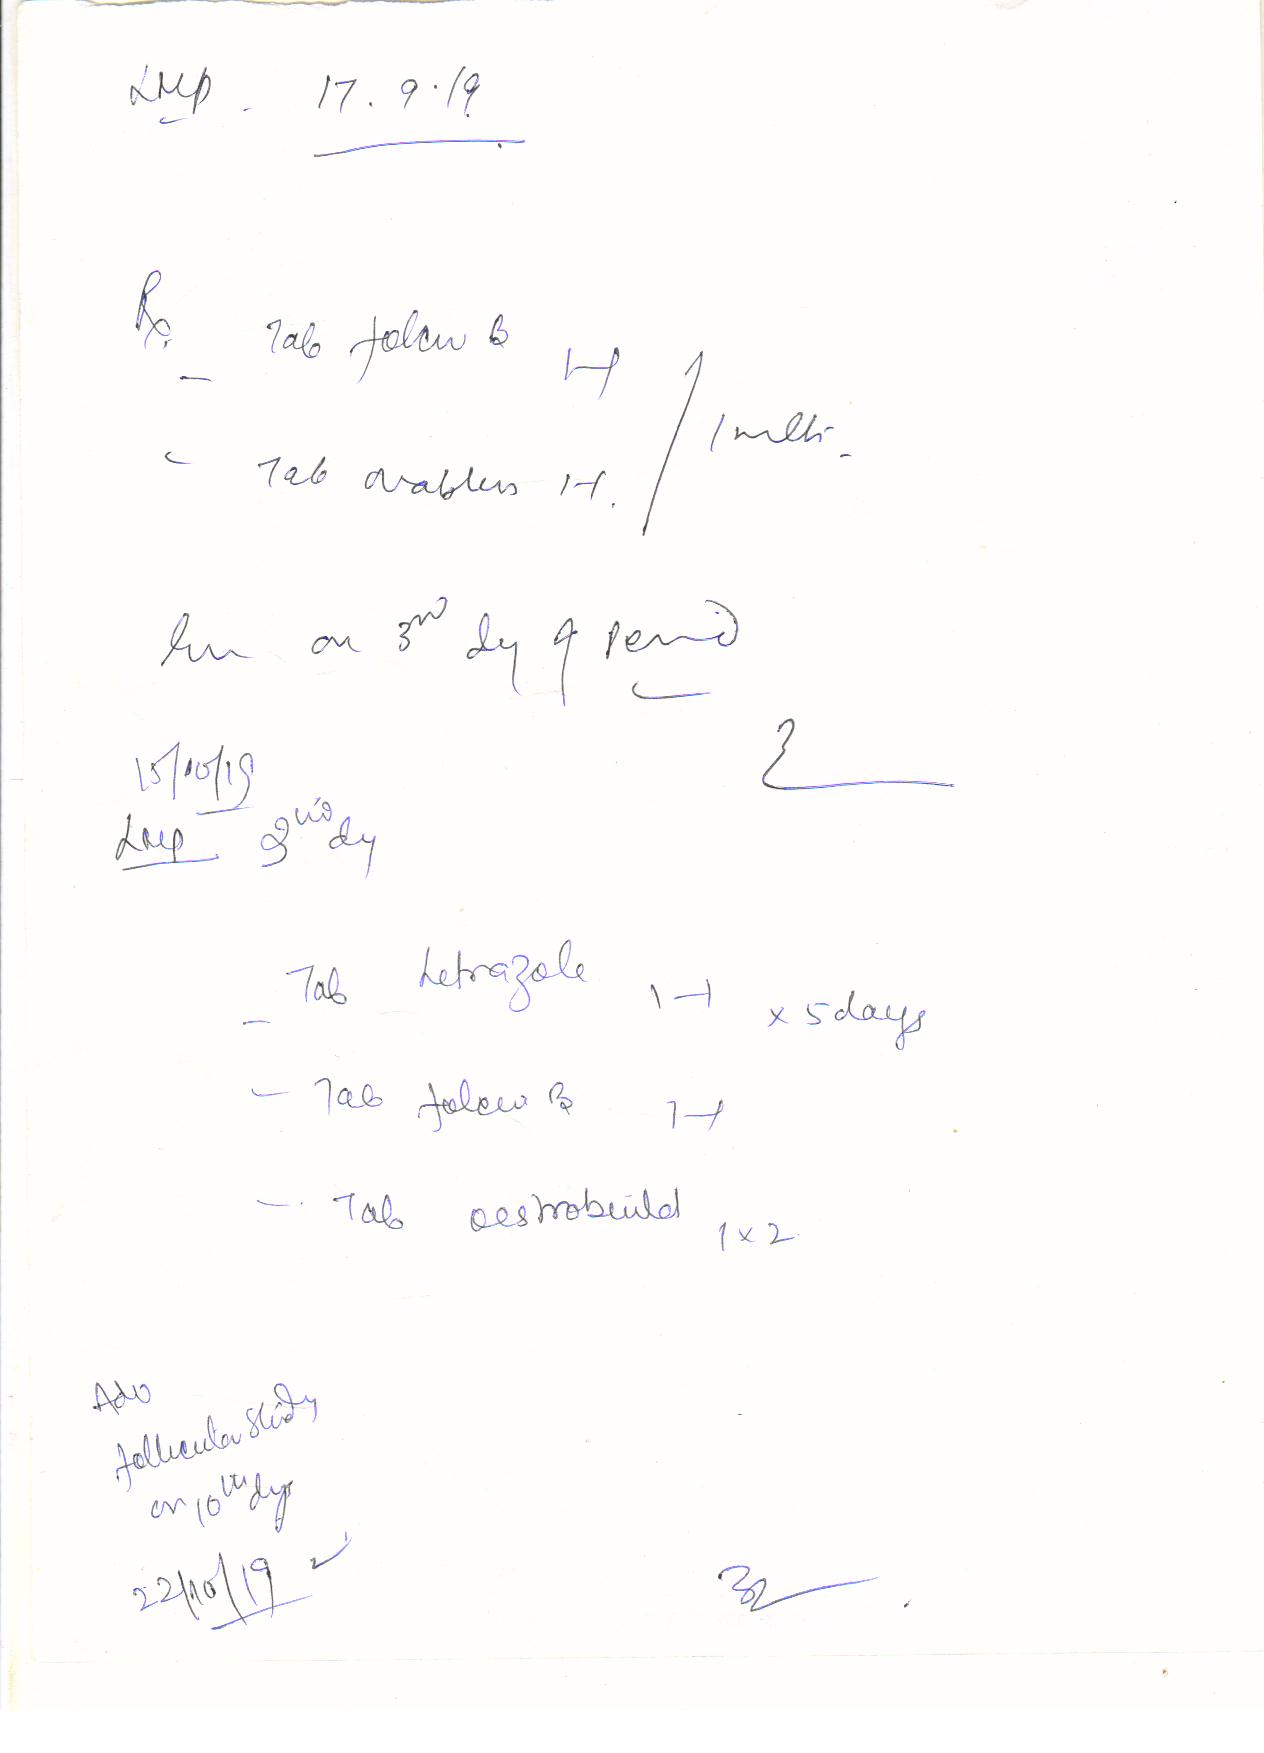 LMP - 17.9.19
Rx
- Tab folcur B 1-1
1 mth.
- Tab ovabless 1-1.
on 3rd dy of Period
15/10/19
LMP 2nd dy
- Tab Letrazole 1-1 x 5 days
- Tab folcur B 1-1
- Tab oestrobuild 1 x 2
Adv
follicular study
on 10th dy
22/10/19